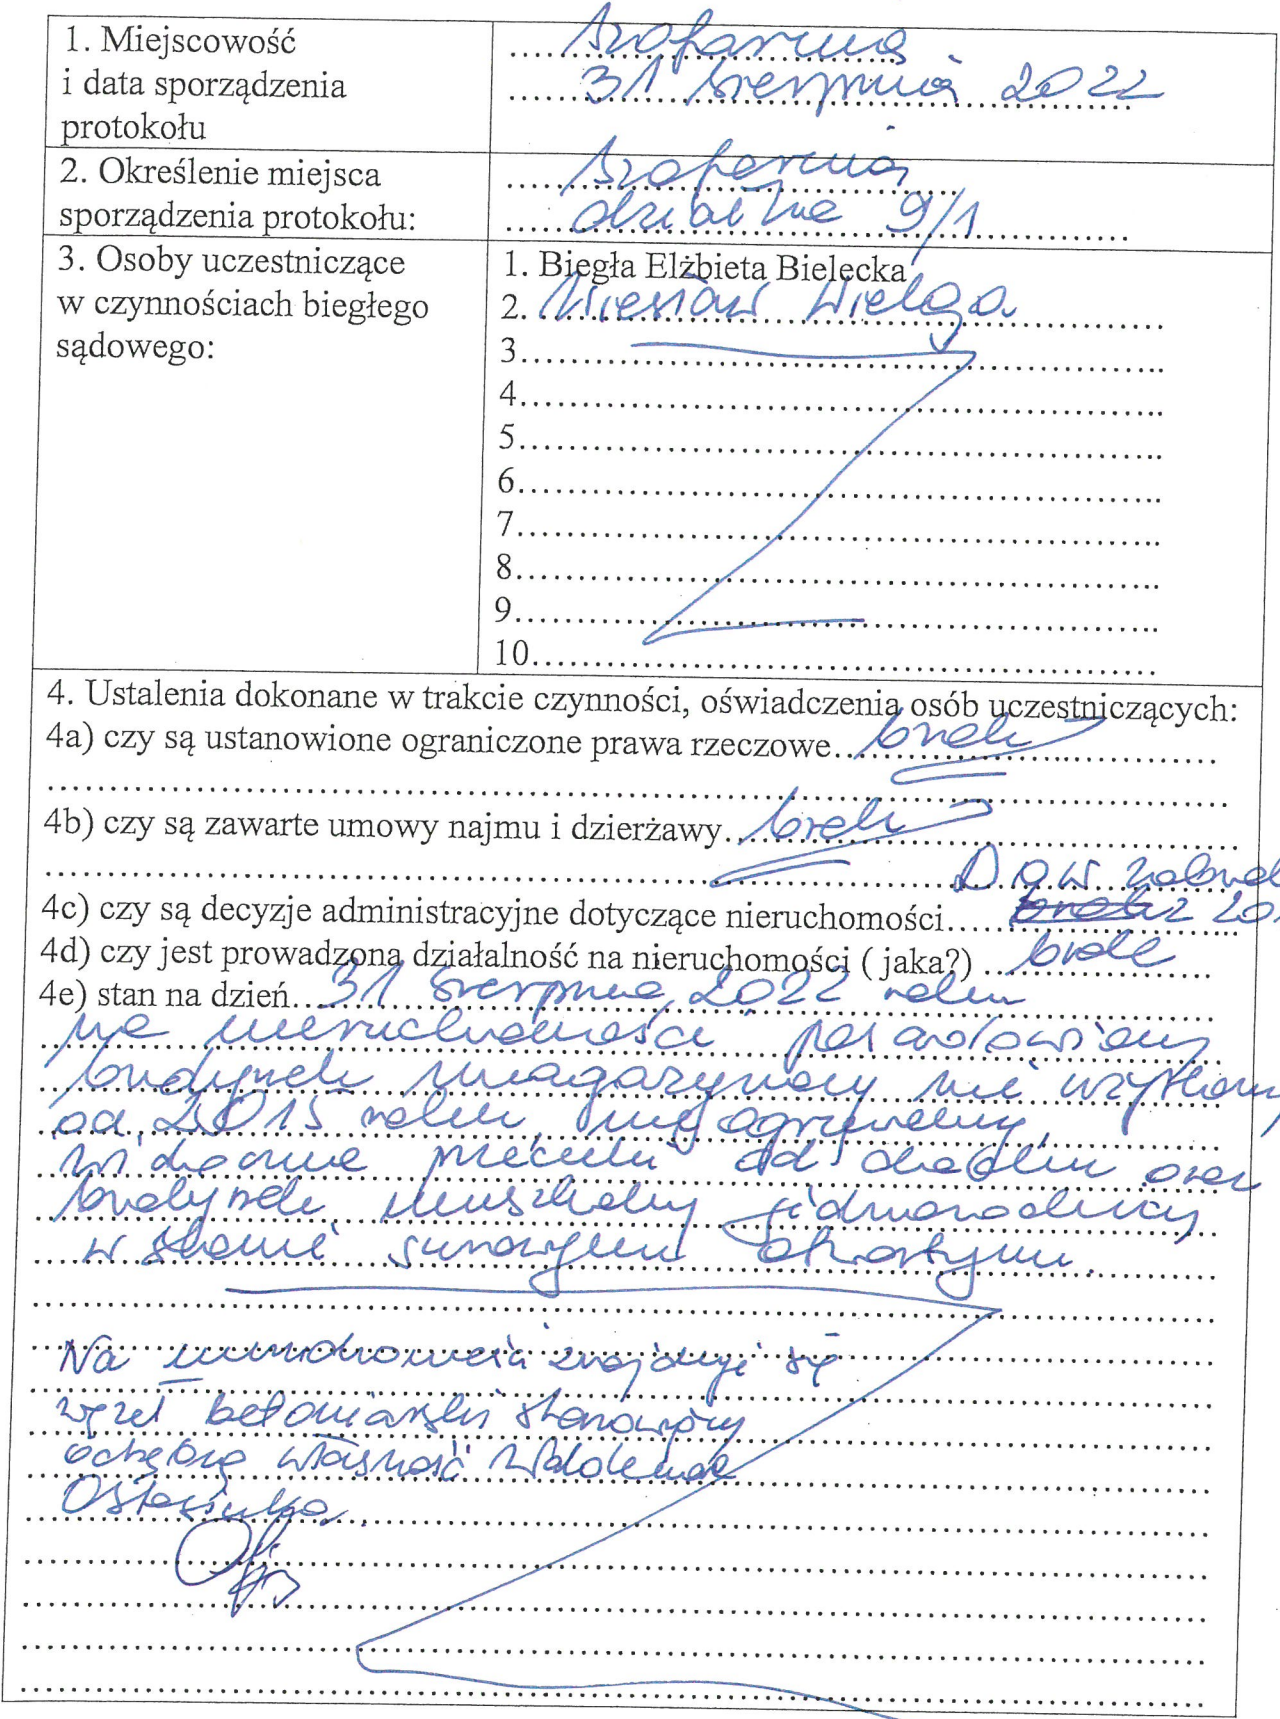 1. Miejscowość
i data sporządzenia
protokołu
Szafarnia
31 sierpnia 2022
2. Określenie miejsca
sporządzenia protokołu:
Szafarnia
działka 9/1
3. Osoby uczestniczące
w czynnościach biegłego
sądowego:
1. Biegła Elżbieta Bielecka
2. Wiesław Wielga
3.
4.
5.
6.
7.
8.
9.
10.
4. Ustalenia dokonane w trakcie czynności, oświadczenia osób uczestniczących:
4a) czy są ustanowione ograniczone prawa rzeczowe brak
4b) czy są zawarte umowy najmu i dzierżawy brak
4c) czy są decyzje administracyjne dotyczące nieruchomości
4d) czy jest prowadzona działalność na nieruchomości ( jaka?) brak
4e) stan na dzień 31 sierpnia 2022 roku
na nieruchomości posadowiony
budynek magazynowy nie użytkowany
od 2015 roku, nieogrzewany,
widoczne przecieki od dachu oraz
budynek mieszkalny jednorodzinny
w stanie surowym otwartym.
Na nieruchomości znajduje się
węzeł betoniarski stanowiący
odrębną własność Waldemara